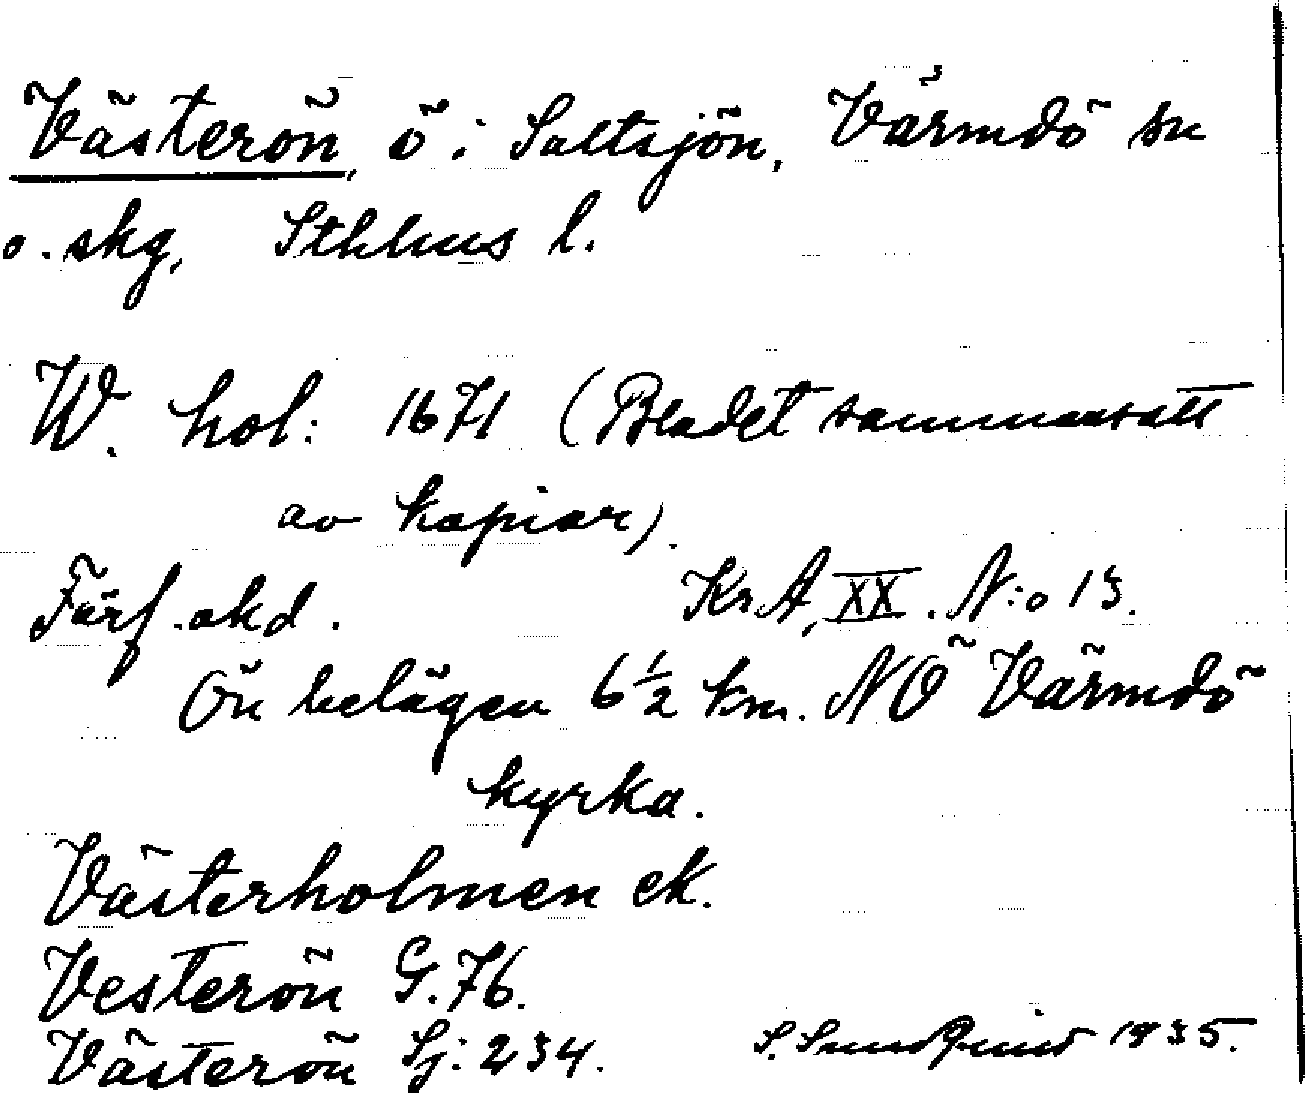 Västerön, ö i Saltsjön, Värmdö sn
o. skg, Sthlms l.
W. hol: 1671 (Bladet sammansatt
av kopior).
Förf. okd. KrA, XX. N:o 13.
Ön belägen 6½ km. NÖ Värmdö
kyrka.
Västerholmen ek.
Vesterön G. 76.
Västerön Sj: 234. S. Sundquist 1935.